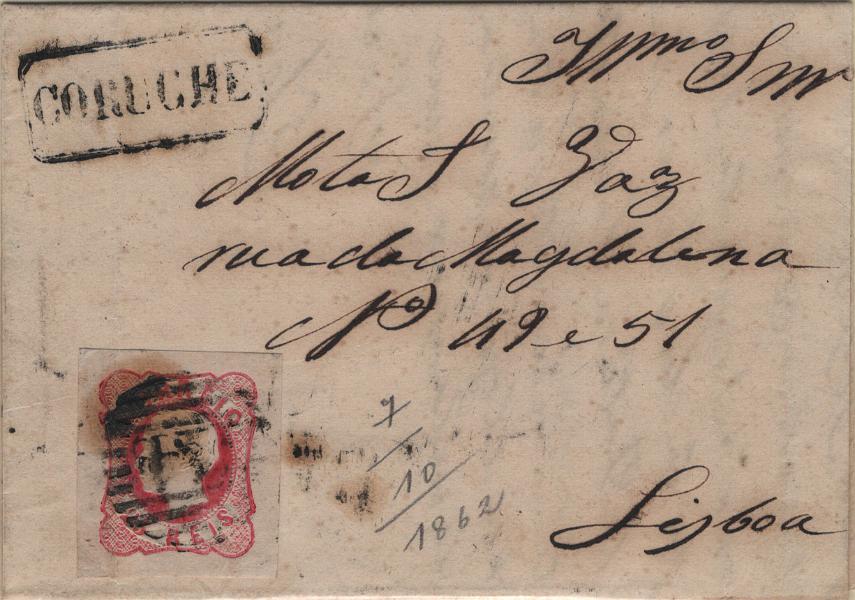 CORUCHE
Illmo Snr
Mota & Vaz
rua da Magdalena
No 49 e 51
Lisboa
7
10
1862
REIS